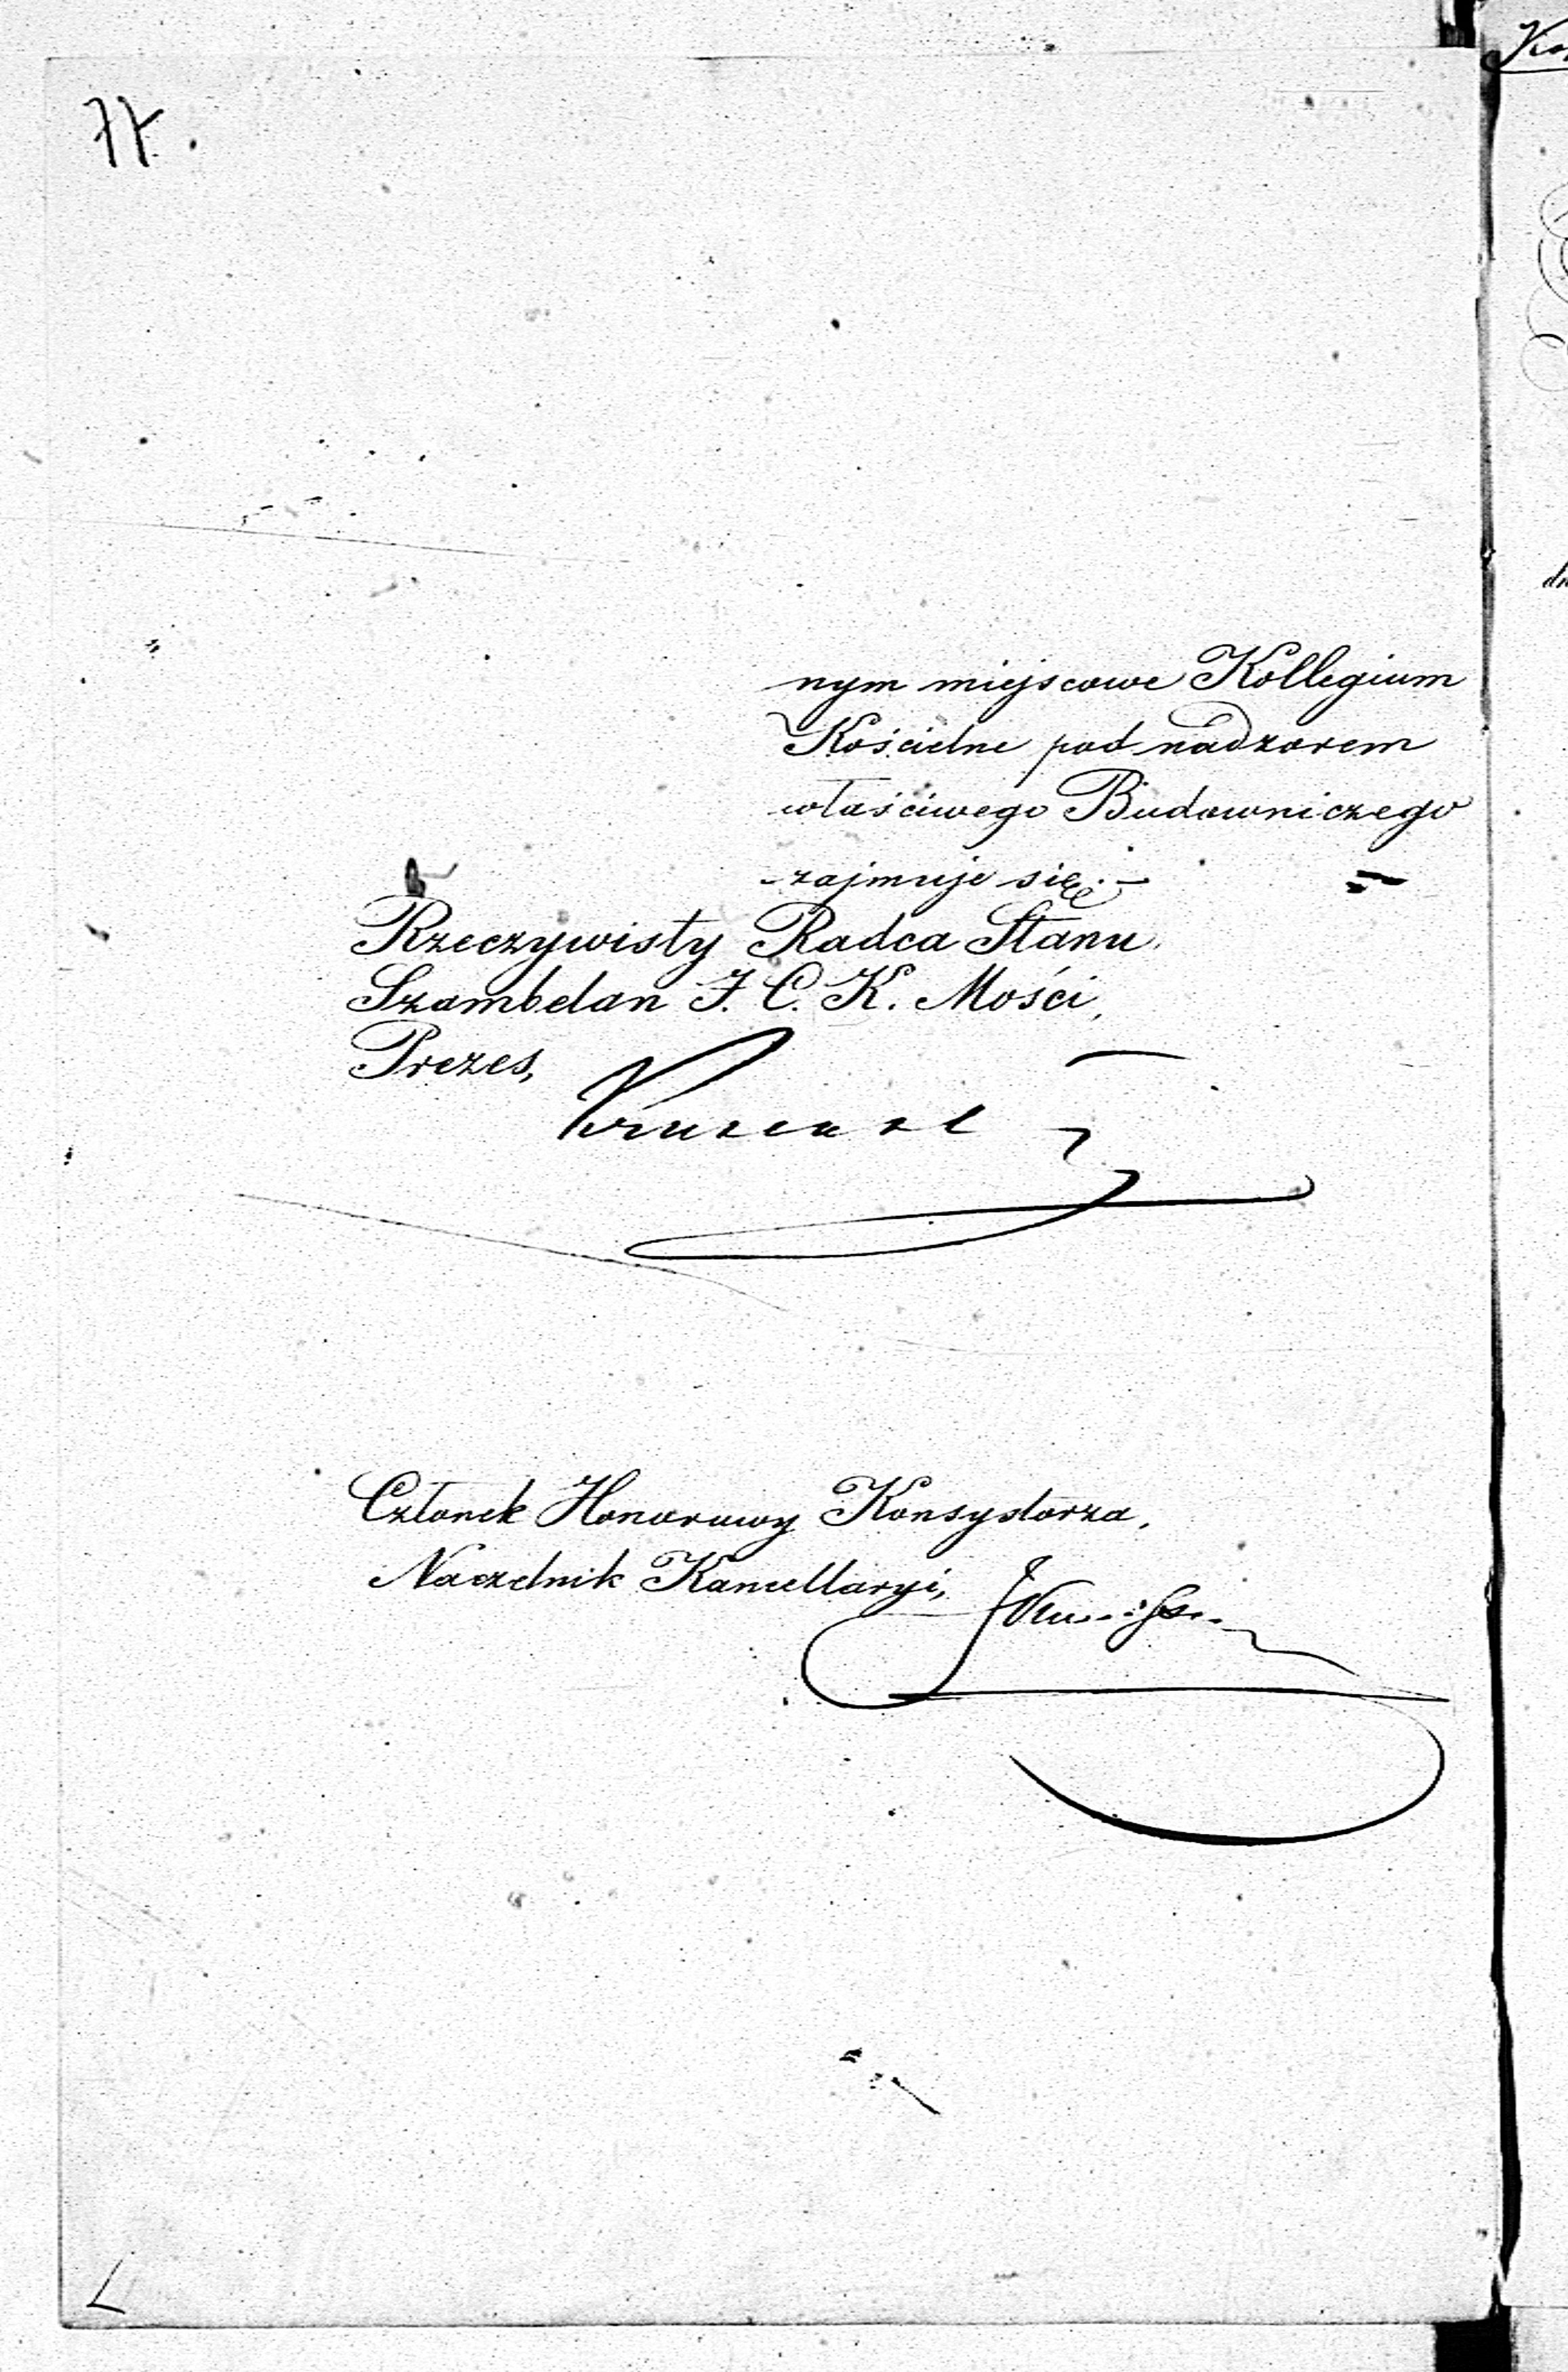 77.
nym miejscowe Kollegium
Kościelne pod nadzorem
właściwego Budowniczego
zajmuje się. —
Rzeczywisty Radca Stanu,
Szambelan J. C. K. Mości,
Prezes,
Członek Honorowy Konsystorza,
Naczelnik Kancellaryi,